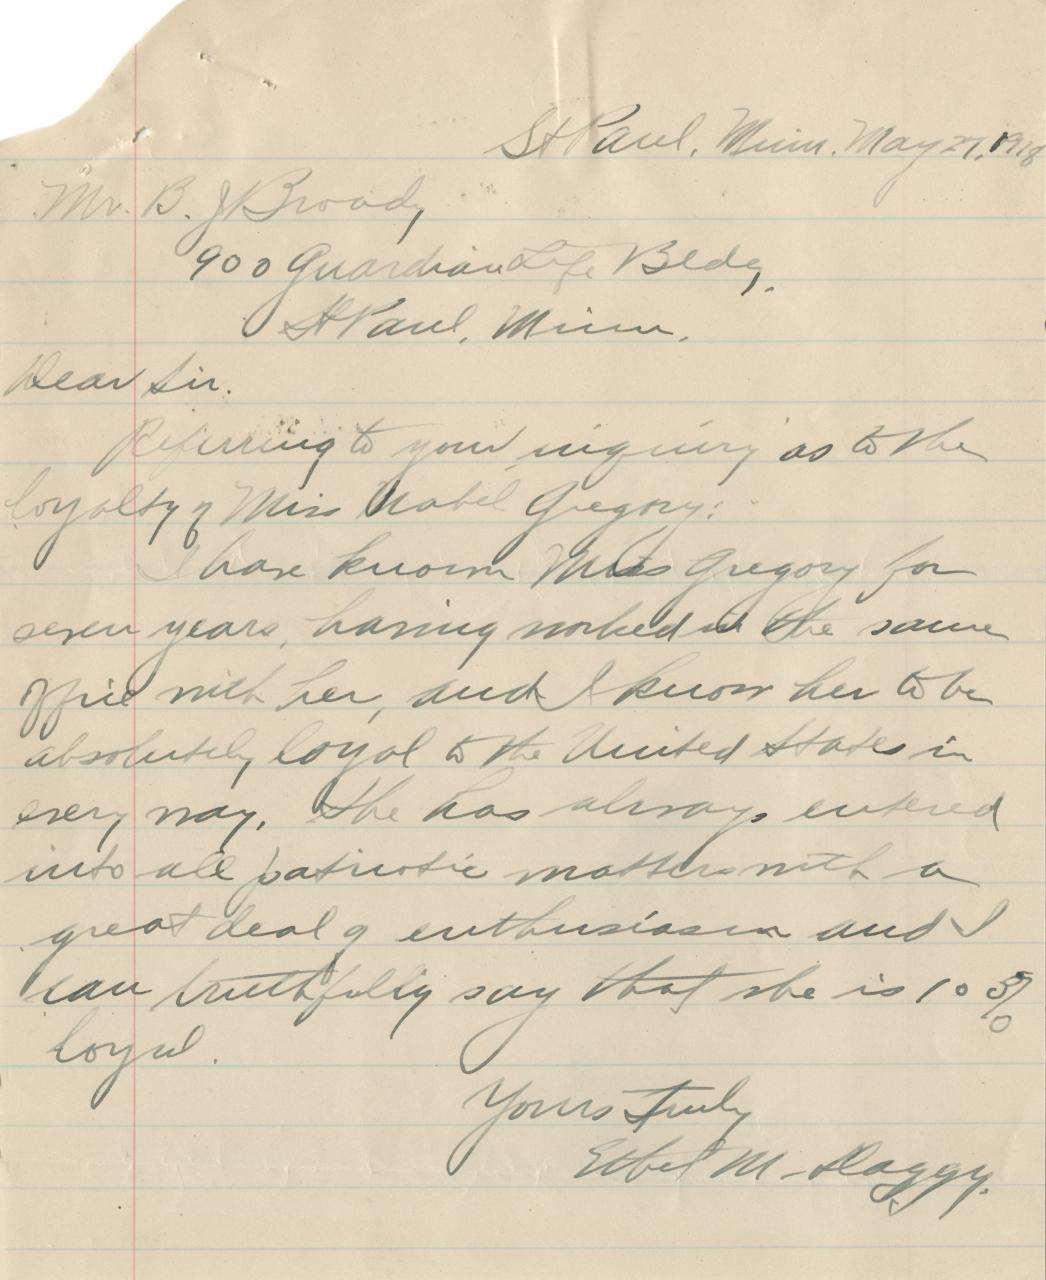 St Paul, Minn. May 27, 1918
Mr. B. J Broady
900 Guardian Life Bldg.
St Paul, Minn.
Dear Sir.
Referring to your inquiry as to the
loyalty of Miss Mabel Gregory:
I have known Miss Gregory for
seven years, having worked in the same
office with her, and I know her to be
absolutely loyal to the United States in
every way. She has always entered
into all patriotic matters with a
great deal of enthusiasm and I
can truthfully say that she is 100%
loyal.
Yours truly
Ethel M. Daggy.